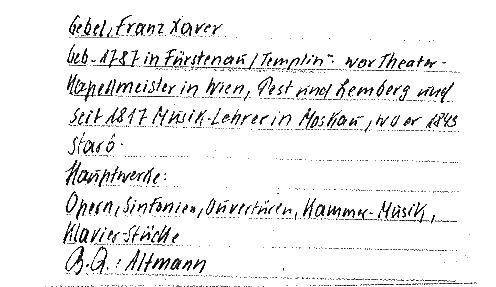 Gebel, Franz Xaver
Geb. 1787 in Fürstenau/Templin - war Theater-
Kapellmeister in Wien, Pest und Lemberg und
seit 1817 Musik-Lehrer in Moskau, wo er 1843
starb.
Hauptwerke:
Opern, Sinfonien, Ouvertüren, Kammer-Musik,
Klavier-Stücke
B.Q.: Altmann